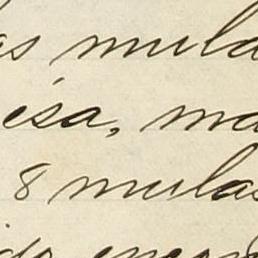 as mula
esa, ma
8 mulas